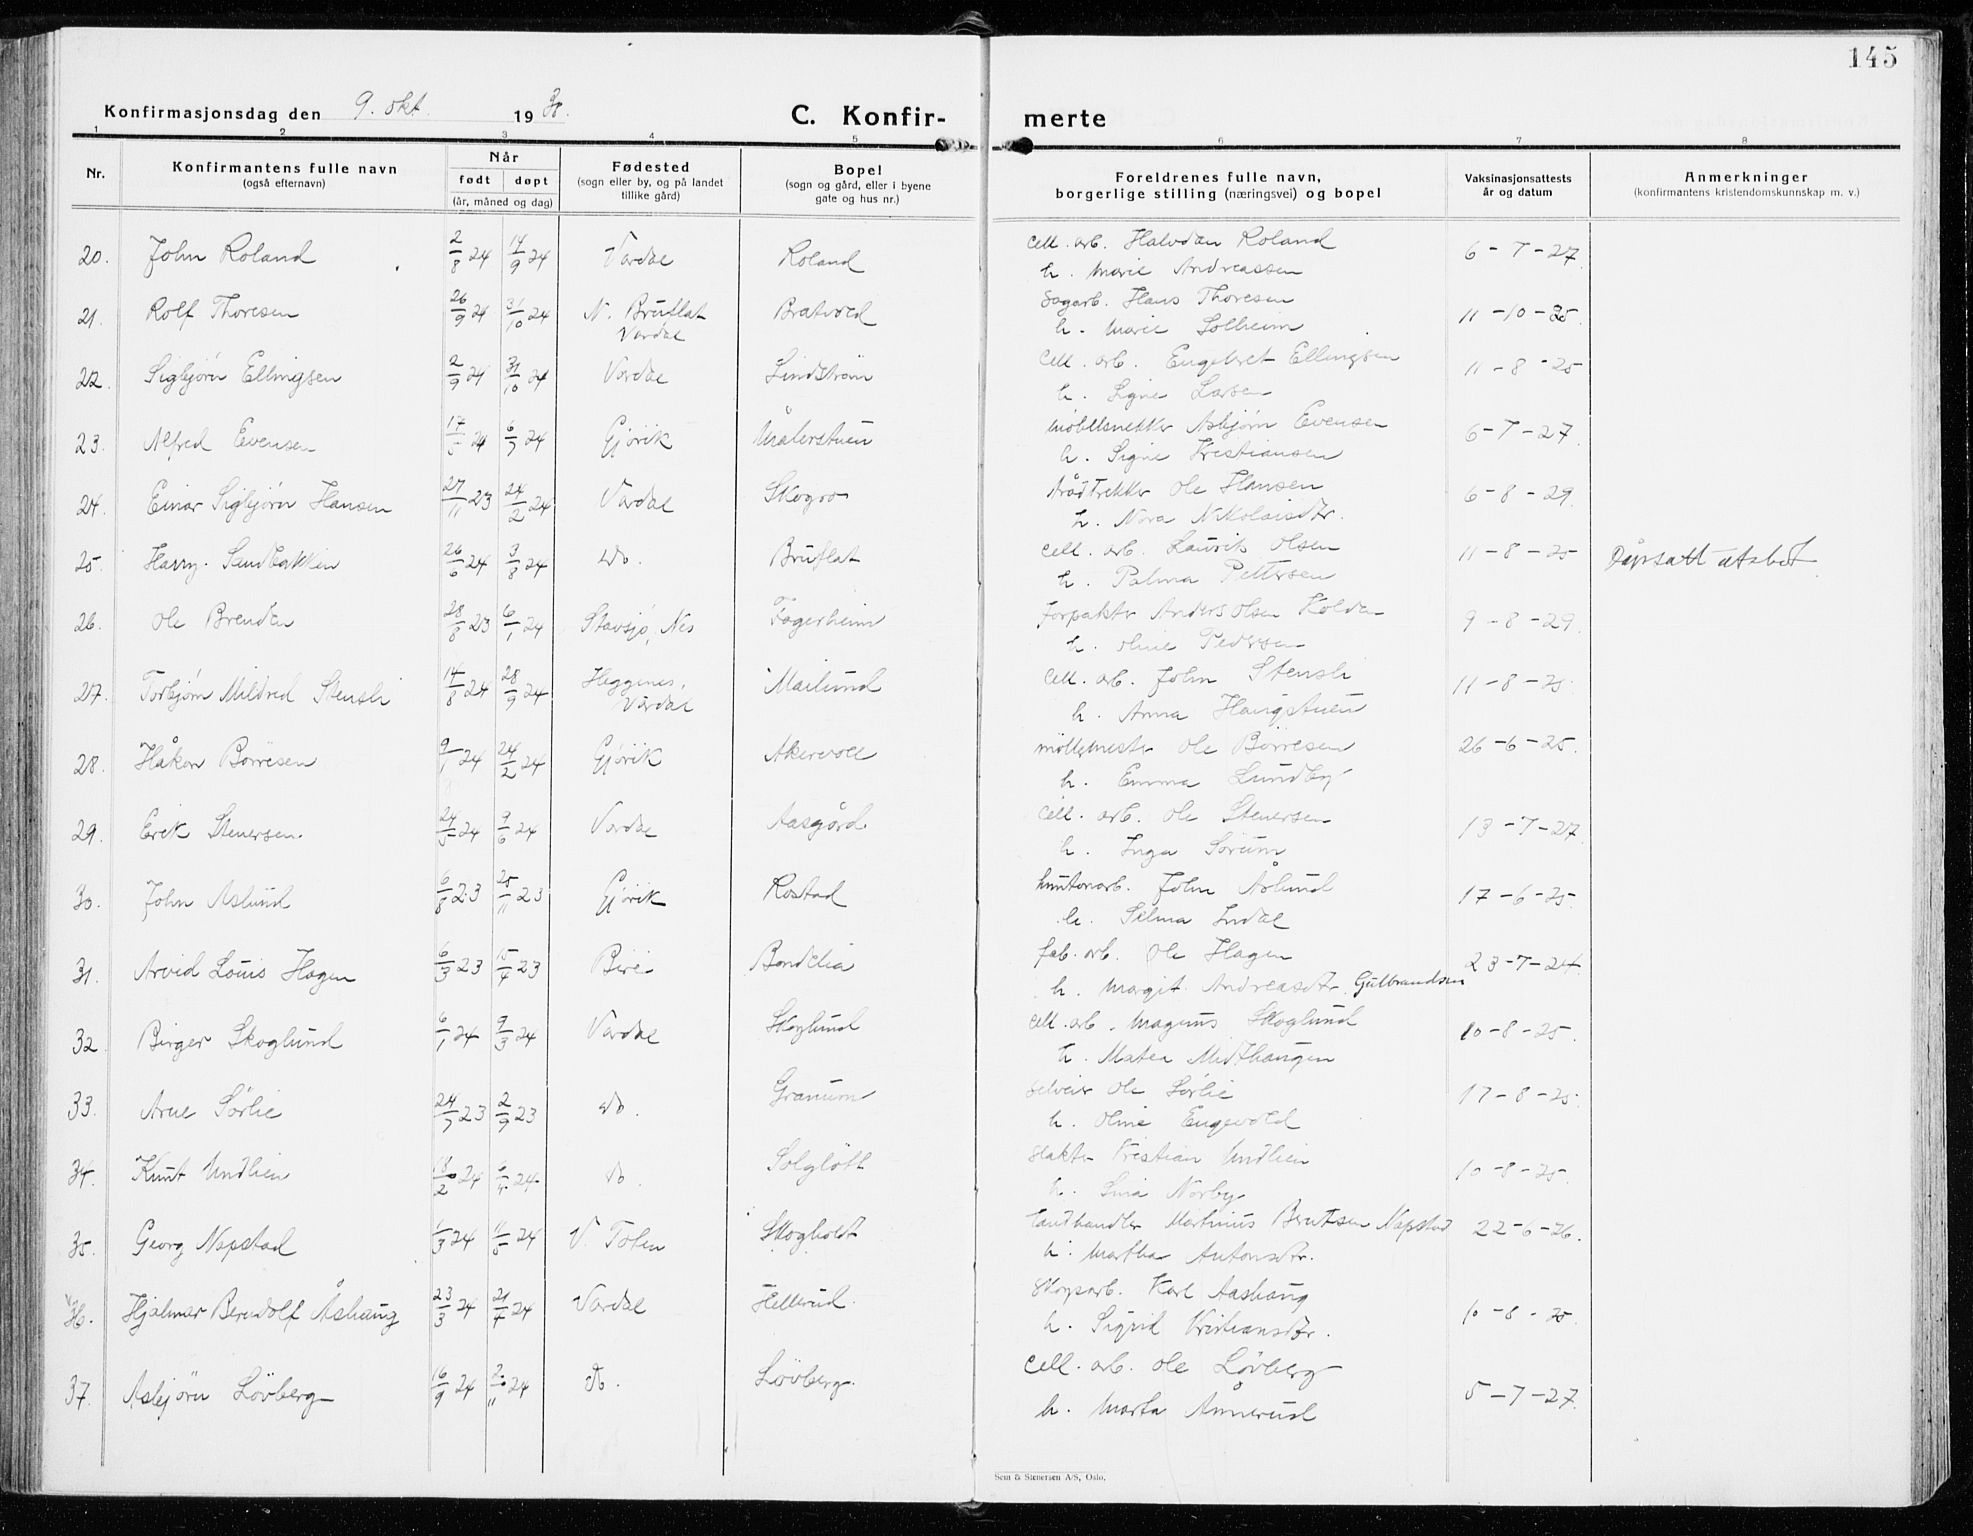 145
Konfirmasjonsdag den 9. okt. 1938. C. Konfirmerte
1 2 3 4 5 6 7 8
Nr. Konfirmantens fulle navn (også efternavn) Når født døpt (år, måned og dag) Fødested (sogn eller by, og på landet tillike gård) Bopel (sogn og gård, eller i byene gate og hus nr.) Foreldrenes fulle navn, borgerlige stilling (næringsvei) og bopel Vaksinasjonsattests år og datum Anmerkninger (konfirmantens kristendomskunnskap m. v.)
20. John Roland 2/8 24 14/9 24 Vardal Roland Cell. arb. Halvdan Roland 6-7-27
h. Marie Andreassen
21. Rolf Thoresen 26/9 24 31/10 24 N. Bruflat Bratvold Sagarb. Hans Thoresen 11-10-35.
Vardal h. Marie Solheim
22. Sigbjørn Ellingsen 2/9 24 31/10 24 Vardal Lindstrøm Cell. arb. Engebret Ellingsen 11-8-25
h. Signe Larsen
23. Alfred Evensen 17/5 24 6/7 24 Gjøvik Malerstuen Møbelsnekker Asbjørn Evensen 6-7-27.
h. Signe Kristiansen
24. Einar Sigbjørn Hansen 27/11 23 24/2 24 Vardal Skogro trådtrekker Ole Hansen 6-8-29.
h. Nora Nikolaisdtr.
25. Harry Sandbakken 26/6 24 3/8 24 do. Bruflat Cell. arb. Laurits Olsen 11-8-25 Dåpsatt utabet
h. Palma Pettersen
26. Ole Brendan 28/8 23 6/1 24 Stavsjø, Nes Fagerheim Forpakter Anders Olsen Koldan 9-8-29.
h. Oline Pedersen
27. Torbjørn Mildred Stensli 14/8 24 28/9 24 Heggenes, Mailund Cell. arb. John Stensli 11-8-25.
Vardal h. Anna Haugstuen
28. Håkon Børresen 9/1 24 24/2 24 Gjøvik Akervoll møllemester Ole Børresen 26-6-25.
h. Emma Lundby
29. Erik Stenersen 24/5 24 9/6 24 Vardal Aasgård Cell. arb. Ole Stenersen 13-7-27
h. Inga Sørum
30. John Aslund 6/8 23 25/11 23 Gjøvik Rostad huntonarb. John Åslund 17-6-25.
h. Selma Indal
31. Arvid Louis Hagen 6/3 23 15/4 23 Biri Bondelia fab. arb. Ole Hagen 23-7-24.
h. Margit Andreasdtr. Gulbrandsen
32. Birger Skoglund 6/1 24 9/3 24 Vardal Skoglund Cell. arb. Magnus Skoglund 10-8-25.
h. Matea Midthaugen
33. Arne Sørlie 24/7 23 2/9 23 do. Granum Selveier Ole Sørlie 17-8-25.
h. Oline Engevold
34. Knut Undlien 18/2 24 6/4 24 do. Solgløtt Slakter Kristian Undlien 10-8-25.
h. Lina Norby
35. Georg Nøpstad 1/3 24 11/5 24 V. Toten Skogholdt Landhandler Martinus Berntsen Nøpstad 22-6-26.
h. Martha Antonsdtr.
36. Hjalmar Berndolf Åshaug 23/3 24 21/7 24 Vardal Hellerud. Skogsarb. Karl Aashaug 10-8-25.
h. Sigrid Kristiansdtr.
37. Asbjørn Løvberg 16/9 24 2/11 24 do. Løvberg. Cell. arb. Ole Løvberg 5-7-27.
h. Marta Ånnerud
Sem & Stenersen A/S, Oslo.